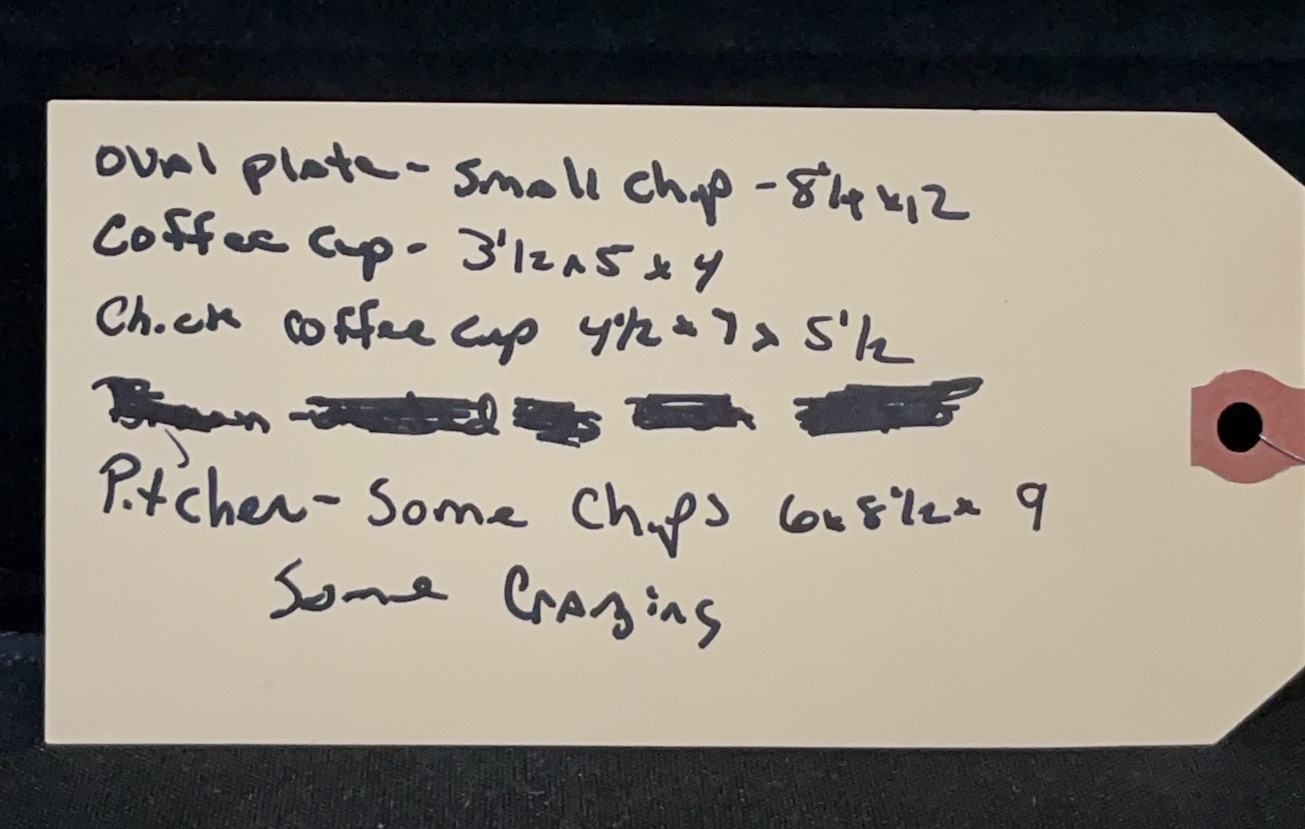 Oval plate - Small chip - 8 1/4 x 12
Coffee cup - 3 1/2 x 5 x 4
Chick coffee cup 4 1/2 x 7 x 5 1/2
Pitcher - Some Chips 6 x 8 1/2 x 9
Some Crazing